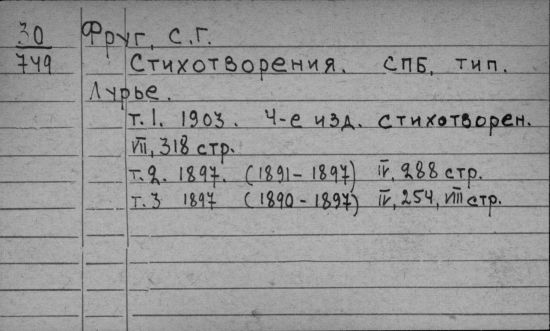 30 Фруг, С.Г.
749 Стихотворения. СПБ, тип.
Лурье.
т.1. 1903. 4-е изд. стихотворен.
VII, 318 стр.
т.2. 1897. (1891-1897) IV, 288 стр.
т.3 1897 (1890-1897) IV, 254, VIII стр.